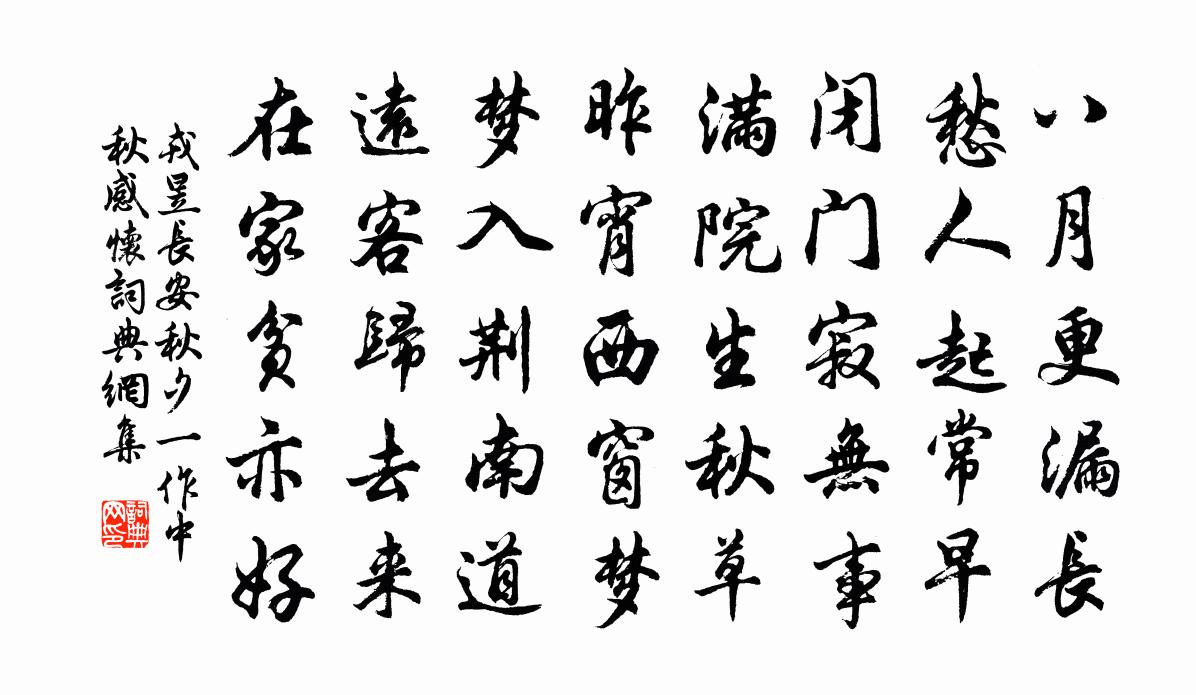 八月更漏長
愁人起常早
闭门寂無事
满院生秋草
昨宵西窗梦
梦入荆南道
遠客歸去来
在家貧亦好
戎昱長安秋夕一作中
秋感懷詞典網集
詞典
网印